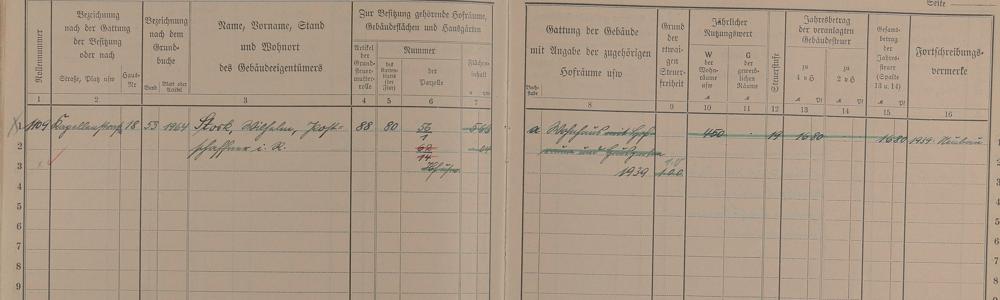 Seite
Rollennummer
Bezeichnung
nach der Gattung
der Besitzung
oder nach
Straße, Platz usw
Haus-
Nr
Bezeichnung
nach dem
Grund-
buche
Band
Blatt oder
Artikel
Name, Vorname, Stand
und Wohnort
des Gebäudeeigentümers
Zur Besitzung gehörende Hofräume,
Gebäudeflächen und Hausgärten
Artikel
der
Grund-
steuer-
mutter-
rolle
Nummer
des
Karten-
blatts
(der
Flur)
der
Parzelle
Flächen-
inhalt
a qm
1 2 3 4 5 6 7
1109 Kapellenstraße 18 53 1964 Stork, Wilhelm, Post-
schaffner i. R.
88 80 56
1
62
14
Hofraum
1
2
3
4
5
6
7
8
9
Gattung der Gebäude
mit Angabe der zugehörigen
Hofräume usw
Buch-
stabe
Grund
der
etwai-
gen
Steuer-
freiheit
Jährlicher
Nutzungswert
W
der
Wohn-
räume
usw
G
der
gewerb-
lichen
Räume
Steuerstufe
Jahresbetrag
der veranlagten
Gebäudesteuer
zu
4 vH
zu
2 vH
Gesamt-
betrag
der
Jahres-
steuer
(Spalte
13 u. 14)
Fortschreibungs-
vermerke
8 9 10 11 12 13 14 15 16
a Wohnhaus mit Hof-
raum und Hausgarten
1939
450 19 1680 1680 1934 Neubau
1
2
3
4
5
6
7
8